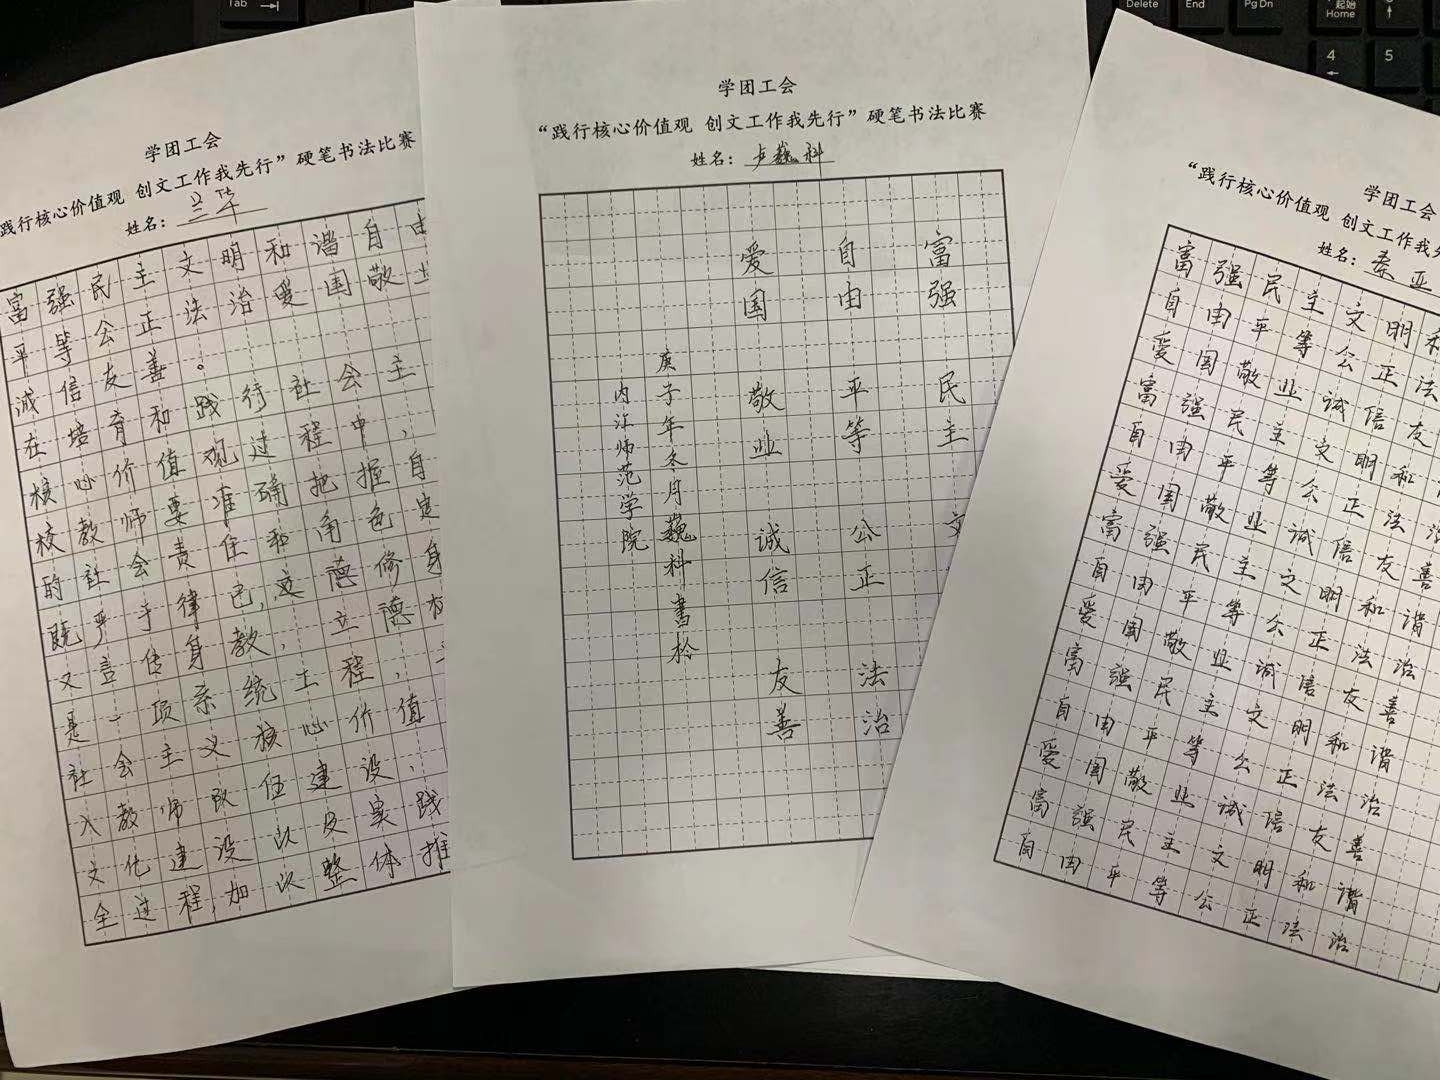 学团工会
践行核心价值观 创文工作我先行”硬笔书法比赛
姓名：兰华
富强民主文明和谐自由
平等公正法治爱国敬业
诚信友善。
在培育和践行社会主
核心价值观过程中，
校教师要准确把握自
的社会责任和角色定
既严于律己，立德修身
又言传身教，立德树
是一项系统工程，
社会主义核心价值
入教师队伍建设、
文化建设以及实践
全过程，加以整体推
学团工会
“践行核心价值观 创文工作我先行”硬笔书法比赛
姓名：卢巍科
富强 民主 文
自由 平等 公正 法治
爱国 敬业 诚信 友善
庚子年冬月巍科书於
内江师范学院
学团工会
“践行核心价值观 创文工作我先
姓名：秦亚
富强民主文明和
自由平等公正法
爱国敬业诚信友
富强民主文明和
自由平等公正法治
爱国敬业诚信友善
富强民主文明和谐
自由平等公正法治
爱国敬业诚信友善
富强民主文明和谐
自由平等公正法治
爱国敬业诚信友善
富强民主文明和谐
自由平等公正法治
Tab
Delete
End
PgDn
起始
Home
4
5